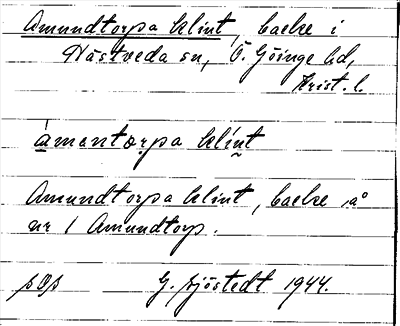 Amundtorpa klint, backe i
Nästveda sn, Ö. Göinge hd,
Krist. l.
àmantærpa klínt
Amundtorpa klint, backe på
nr 1 Amundtorp.
G. Sjöstedt 1944.